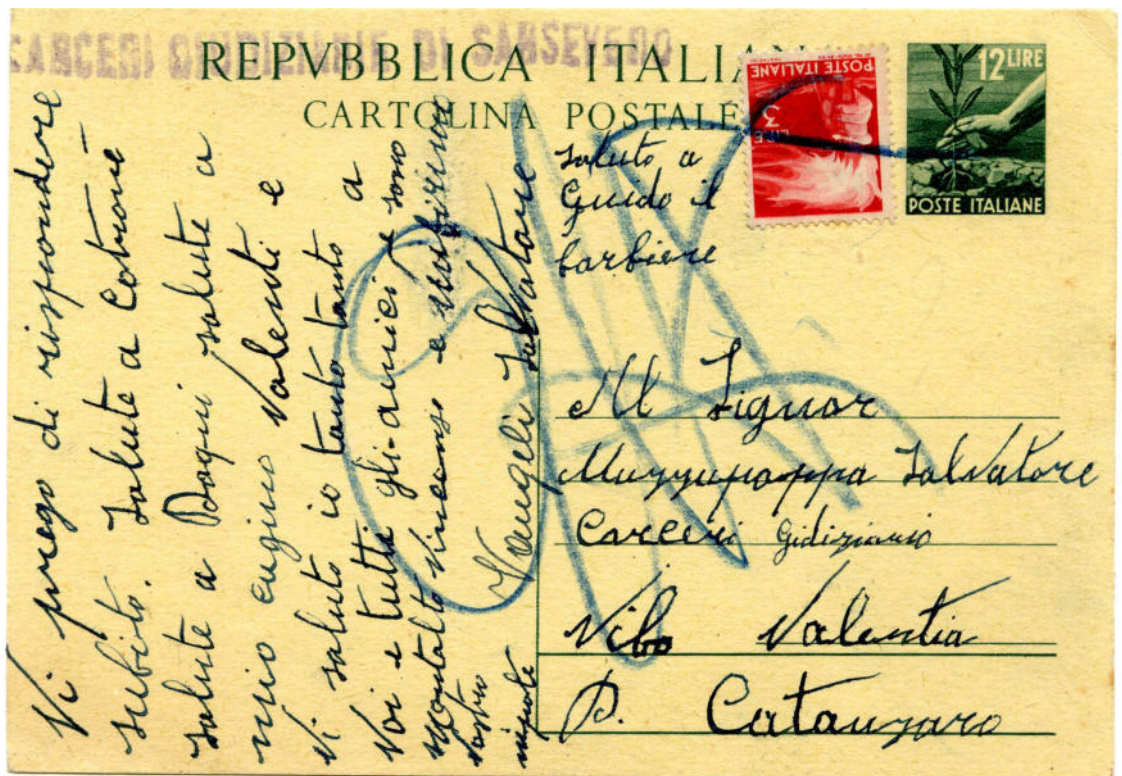 CARCERI GIUDIZIARIE DI SANSEVERO
REPVBBLICA ITALIANA
CARTOLINA POSTALE
12 LIRE
POSTE ITALIANE
POSTE ITALIANE
LIRE 3
Saluto a
Guido il
barbiere
Al Signor
Muzzupappa Salvatore
Carceri Gidiziario
Vibo Valentia
P. Catanzaro
Vi prego di rispondere
subito. Salute a Cotrone
salute a salute a
mio cugino Valenti e
Vi saluto io tanto tanto a
Voi e tutti gli amici e sono
Montalto Vincenzo e
vostro Salvatore
nipote